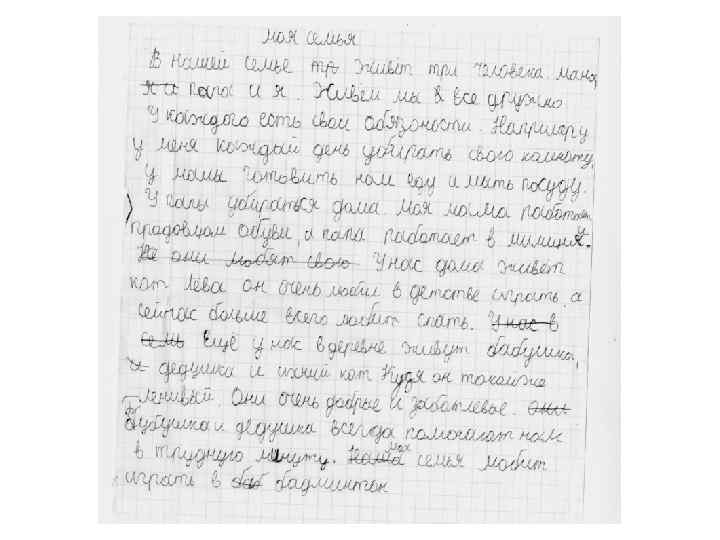 моя семья
В нашей семье тр живёт три человека. мама,
я и папа и я. Живём мы в все дружно
У каждого есть свои обязоности. Например у
у меня каждый день убирать свою комнату,
у мамы готовить нам еду и мыть посуду.
У папы убираться дома. Моя мама работает
прадовцом обуви, а папа работает в милиция.
Но они любят свою У нас дома живёт
кот Лёва он очень любил в детстве играть, а
сейчас больше всего любит спать. У нас в
семь Ещё у нас в деревне живут бабушка,
и дедушка и ихний кот Кузя он такойже
ленивый. Они очень добрые и заботлевые. они
Бубушка и дедушка всегда помогают нам
в трудную минуту. Наша моя семья любит
играть в баб бадминтон